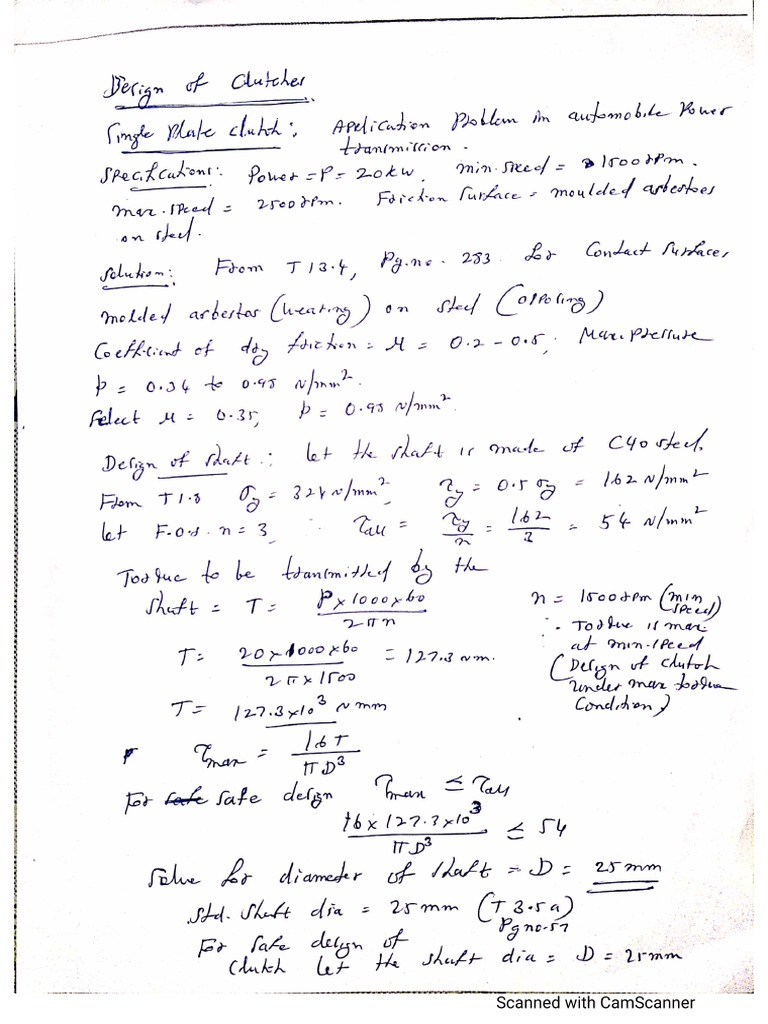 Design of Clutches
Single Plate clutch: Application Problem in automobile Power
transmission.
Specifications: Power = P = 20kw, min. speed = 1500rpm.
max. speed = 2500rpm. Friction Surface = moulded asbestoes
on steel.
Solution: From T 13.4, Pg.no. 283 for Contact surfaces,
molded asbestos (wearing) on steel (opposing)
Coefficient of dry friction = μ = 0.2 - 0.5, Max. Pressure
p = 0.34 to 0.98 N/mm²
Select μ = 0.35, p = 0.98 N/mm².
Design of shaft: let the shaft is made of C40 steel.
From T1.8 σy = 324 N/mm², τy = 0.5 σy = 162 N/mm²
let F.O.S. n = 3, ∴ τall = τy/n = 162/3 = 54 N/mm²
Torque to be transmitted by the
shaft = T = P×1000×60 / 2πn
n = 1500rpm (min speed)
∴ Torque is max
at min. speed
(Design of clutch
under max torque
Condition)
T = 20×1000×60 / 2π×1500 = 127.3 Nm.
T = 127.3×10³ N mm
τmax = 16T / πD³
For safe design τmax ≤ τall
16×127.3×10³ / πD³ ≤ 54
Solve for diameter of shaft = D = 25mm
Std. shaft dia = 25mm (T 3.5a)
Pg no. 57
For safe design of
clutch let the shaft dia = D = 25mm
Scanned with CamScanner